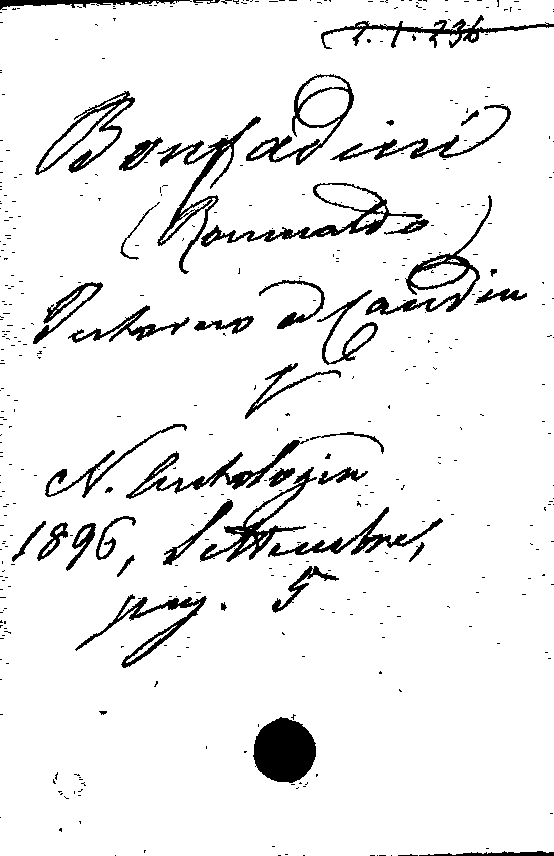 2.1.236
Bonfadini
(Romualdo)
Intorno a Candia
V.
N. Antologia
1896, Settembre,
pag. 5